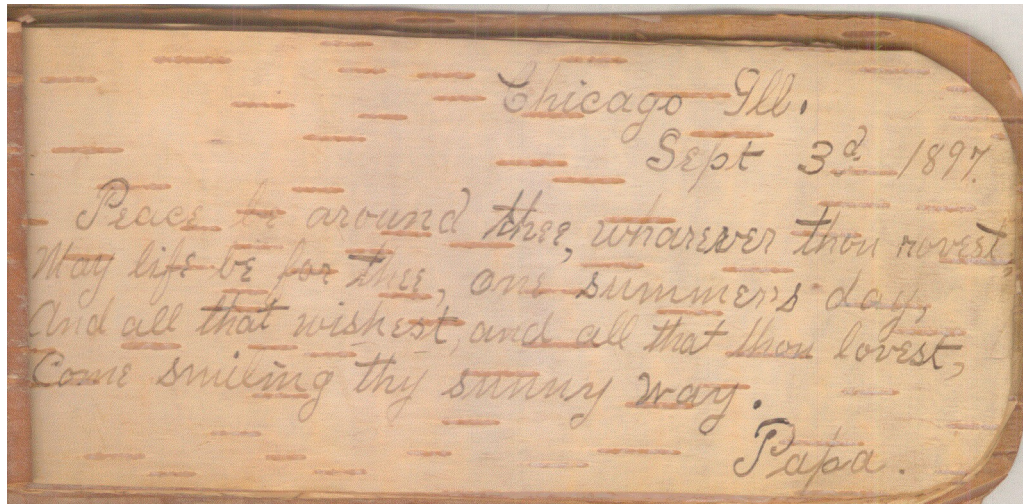 Chicago Ill.
Sept 3d. 1897.
Peace be around thee, wharever thou rovest,
May life be for thee, one summers day,
And all that wishest, and all that thou lovest,
Come smiling thy sunny way.
Papa.